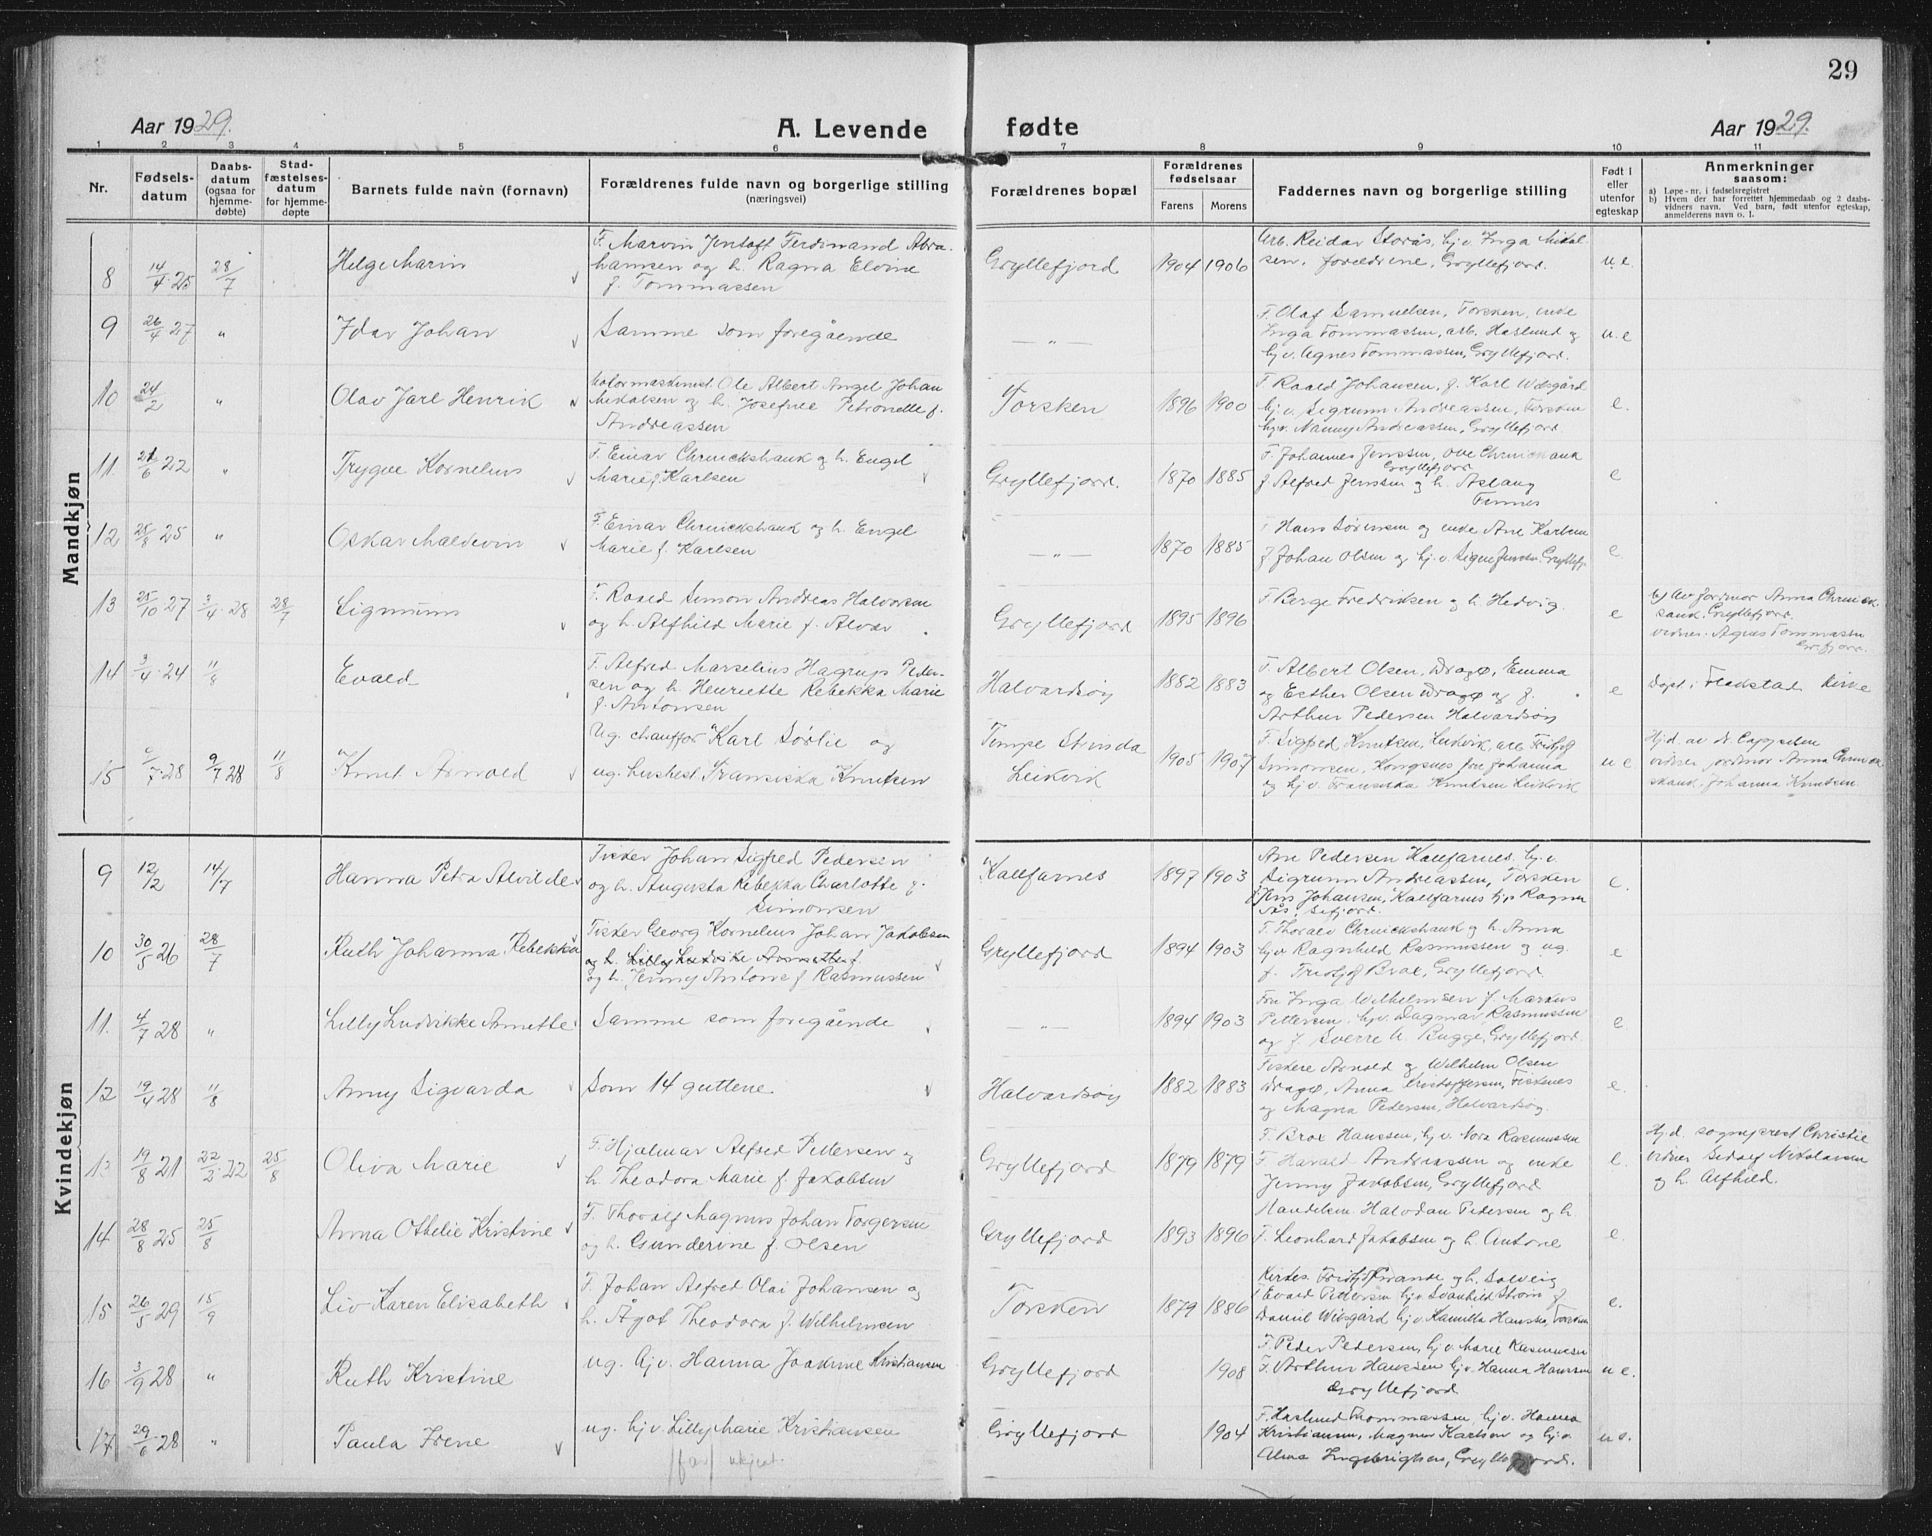 29
Aar 1929.
A. Levende
fødte
Aar 1929.
1 2 3 4 5 6 7 8 9 10 11
Nr.
Fødsels-
datum
Daabs-
datum
(ogsaa for
hjemme-
døbte)
Stad-
fæstelses-
datum
for hjemme-
døpte
Barnets fulde navn (fornavn)
Forældrenes fulde navn og borgerlige stilling
(næringsvei)
Forældrenes bopæl
Forældrenes
fødselsaar
Farens Morens
Faddernes navn og borgerlige stilling
Født i
eller
utenfor
egteskap
Anmerkninger
saasom:
a) Løpe-nr. i fødselsregistret
b) Hvem der har forrettet hjemmedaab og 2 daabs-
vidners navn. Ved barn, født utenfor egteskap,
anmelderens navn o. l.
Mandkjøn
8 14/4 25 28/7 Helge Marin
F. Marvin Jentoft Ferdinand Abra-
hamsen og h. Ragna Elvine
f. Tommassen
Gryllefjord 1904 1906
Arb. Reidar Storås, hj.v. Inga Mikal-
sen, foreldrene, Gryllefjord.
u.e.
9 26/4 27 " Idar Johan
Samme som foregående
— „ —
F. Olaf Samuelsen, Torsken, enke
Inga Tommassen, arb. Haslund og
hj.v. Agnes Tommassen, Gryllefjord.
u.e
10 24/2 " Olav Jarl Henrik
Motormaskinist Ole Albert Angel Johan
Mikalsen og h. Josefine Petronelle f.
Andreassen
Torsken 1896 1900
F. Roald Johansen, f. Karl Wibgård
hj.v. Sigrunn Andreassen, Torsken
hj.v. Nanny Andreassen, Gryllefjord
e.
11. 21/6 22 " Trygve Kornelius
F. Einar Chruickshank og h. Engel
Marie f. Karlsen
Gryllefjord. 1870 1885
F. Johannes Jenssen, Ove Chruickshank
Gryllefjord
f. Alfred Jenssen og h. Aslaug
Finnes
e
12 25/8 25 " Oskar Maldevin
F. Einar Chruickshank og h. Engel
Marie f. Karlsen
— „ — 1870 1885
F Hans Sørensen og enke Ane Karlsen
f Johan Olsen og hj.v. Signe Jensen Gryllefj.
e
13 25/10 27 3/4 28 28/7 Sigmunn
F. Roald Simon Andreas Halvorsen
og h. Alfhild Marie f. Alvær
Gryllefjord 1895 1896
F. Berge Fredriksen og h. Hedvig.
e
b) Av jormor Anna Chruick-
shank. Gryllefjord.
vidner. Agnes Tommassen
Gr.fjord.
14 3/4 24 11/8 Evald
F. Alfred Marselius Hagrup Peder-
sen og h. Henriette Rebekka Marie
f. Antonsen
Halvardsøy 1882 1883
F. Albert Olsen, Dragø, Emma
og Esther Olsen Dragø og f.
Arthur Pedersen Halvardsøy
e
Døpt i Flakstad kirke
15 /7 28 9/7 28 11/8 Knut Arnold
Ug. chauffør Karl Sørlie og
ug. Franciska Knutsen
Tempe Strinda
Leikvik
1905 1907
F. Sigfred Knutsen, Leikvik, arb. Fridtjof
Simonsen, Kongsnes fru Johanna
og hj.v. Franciska Knutsen Leikvik
u e
Hj.d. av dr. Cappelen
vidner jordmor Anna Chruick-
shank. Johanna Knutsen.
Kvindekjøn
9 12/12 14/7 Hanna Petra Alvilde
Fisker Johan Sigfred Pedersen
og h. Augusta Rebekka Charlotte f.
Simonsen
Kalfarnes 1897 1903
Arne Pedersen Kalfarnes, hj.v.
Sigrunn Andreassen, Torsken
Jens Johansen, Kalfarnes hj.v Ragna
Ås, Sifjord.
e.
10 30/5 26 28/7 Ruth Johanna Rebekka
Fisker Georg Kornelius Johan Jakobsen
og h. Lilly Ludvike Annette f
og h. Jenny Antone f. Rasmussen
Gryllefjord 1894 1903
F. Thoralv Chruickshank og h. Anna
hj.v Ragnhild Rasmussen og ug.
f. Fridtjof Broe, Gryllefjord.
e
11. 4/7 28 " Lilly Ludvikke Annette
Samme som foregående
— „ — 1894 1903
Fru Inga Wilhelmsen f. Markus
Pettersen, hj.v. Dagmar Rasmussen
og f. Sverre A. Bugge, Gryllefjord.
e.
12 19/4 28 11/8 Anny Sigvarda
Som 14 guttene
Halvardsøy 1882 1883
Fiskere Arnold og Wilhelm Olsen
Dragø, Anna Kristoffersen, Fisknes
og Magna Pedersen, Halvardsøy.
e.
13 19/8 21 22/2 22 25/8 Oliva Marie
F. Hjalmar Alfred Pettersen og
h. Theodora Marie f. Jakobsen
Gryllefjord 1879 1879
F. Broe Hanssen, hj.v Nora Rasmussen
F. Harald Andreassen og enke
Jenny Jakobsen, Gryllefjord
e.
Hj.d. sogneprest Christie
vidner Sedolf Nikolaisen
og h. Alfhild.
14 28/8 25 25/8 Anna Othelie Kristine
F. Thoralf Magnus Johan Torgersen
og h. Gunderine f. Olsen
Gryllefjord 1893 1896
Handelsm. Halvdan Pedersen og h.
F. Leonhard Jakobsen og h. Antone
e.
15 26/5 29 15/9 Liv Karen Elisabeth
F. Johan Alfred Olai Johansen og
h. Ågot Theodora f. Wilhelmsen
Torsken 1879 1886
Kirkes. Fridtjof Strande og h. Solveig
Evald Pettersen hj.v Svanhild Strøm f
Daniel Wibgård hj.v. Kamilla Hanssen, Torsken
e.
16 3/9 28 " Ruth Kristine
ug. hj.v. Hanna Joakime Kristiansen
Gryllefjord 1908
F. Peder Pedersen, hj.v. Marie Rasmussen
F. Arthur Hanssen hj.v. Hanna Hanssen
Gryllefjord
u e.
17 29/6 28 " Paula Irene
ug. hj.v. Lilly Marie Kristiansen
/far/ ukjent.
Gryllefjord 1904
F. Haslund Thommassen, hj.v. Hanna
Kristiansen, Magnus Karlsen og hj.v.
Alma Ingebrigtsen, Gryllefjord.
u e.